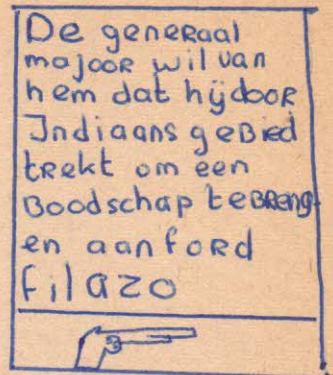 De geneRaal
majooR wil van
hem dat hij dooR
Indiaans geBied
tRekt om een
Boodschap teBReng-
en aan foRd
filazo